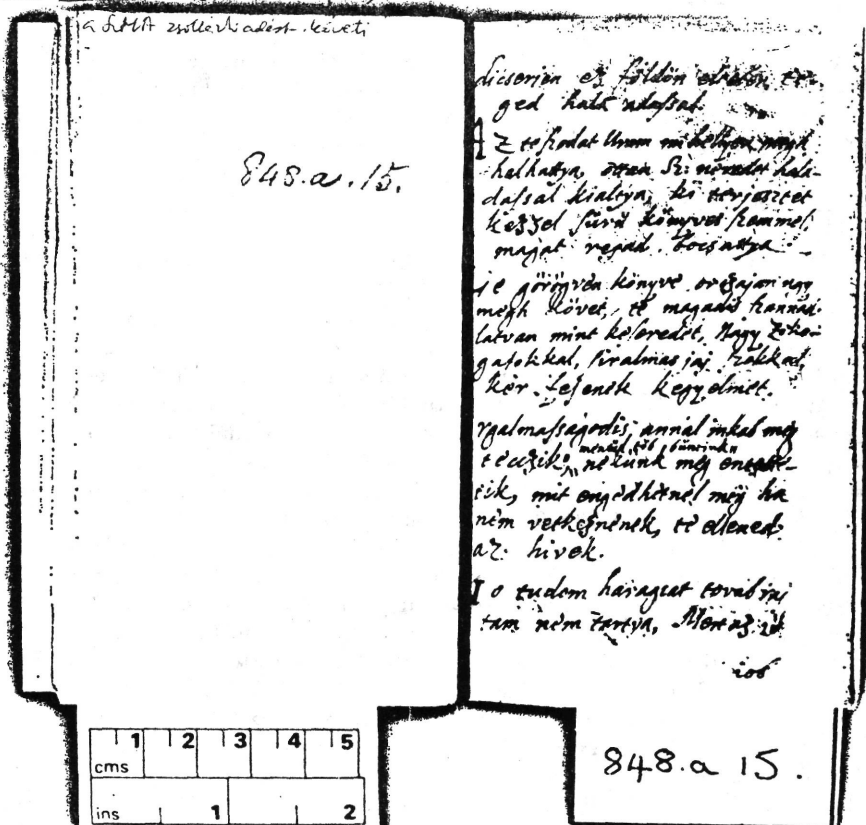 a RMA zsoltárkiadást követi
848.a.15.
dicserjen ez földön
ged hala adassal.
Az te szodat Uram mihelyen megh
halhattya, ottan Sz: nevedet hala-
dassal kialtya, ki terjesztet
kezzel sürü könyves szemmel,
magat regad bocsattya.
je görögvén könyve orczajan ugy
megh követ, te magadis szannad
latvan mint keseredet, Nagy zoko-
gasokkal, siralmas jaj szokkal,
kér fejenek kegyelmet.
rgalmassagodis, annal inkab meg
teczik, mennül töb büneink
nelünk meg
tik, mit engedhetnel meg ha
nem vetkeznenek, te ellened
az hivek.
Io tudom haragyat tovab mi
tam nem tartya, Mert az
ios
1 2 3 4 5
cms
ins 1 2
848.a 15.